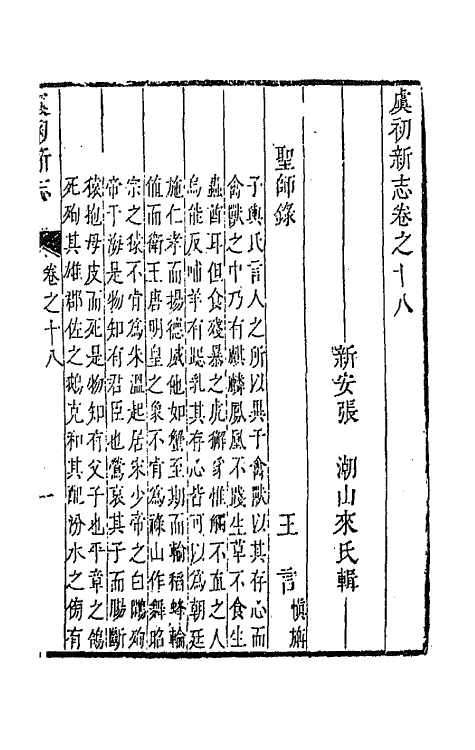 虞初新志卷之十八
新安張　潮山來氏輯
聖師錄
王　言慎旃
子輿氏言人之所以異于禽獸以其存心而
禽獸之中乃有麒麟鳳凰不踐生草不食生
蟲酋耳但食殘暴之虎獬豸惟觸不直之人
烏能反哺羊有跪乳其存心皆可以為朝廷
施仁孝而揚德威他如蟹至期而輸稻蜂輪
值而衛王唐明皇之象不肯為祿山作舞昭
宗之猿不肯為朱溫起居宋少帝之白鷴殉
帝于海是物知有君臣也鶯哀其子而腸斷
猿抱母皮而死是物知有父子也平章之鴿
死殉其雄郡佐之鵝克和其配汾水之鴈有
虞初新志
卷之十八
一